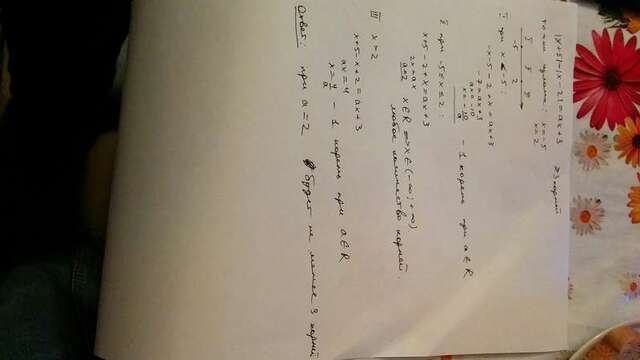 |x+5|-|x-2|=ax+3 ≥3 корней
точки нули: x=-5
x=2
I II III
-5 2
I при x<-5:
-x-5-2+x=ax+3
-7=ax+3
ax=-10
x=-10/a - 1 корень при a∈R
II при -5≤x≤2:
x+5-2+x=ax+3
2x=ax
a=2 x∈R ⇒ x∈(-∞;+∞)
любое количество корней.
III x>2
x+5-x+2=ax+3
ax=4
x=4/a - 1 корень при a∈R
Ответ: при a=2 будет не менее 3 корней